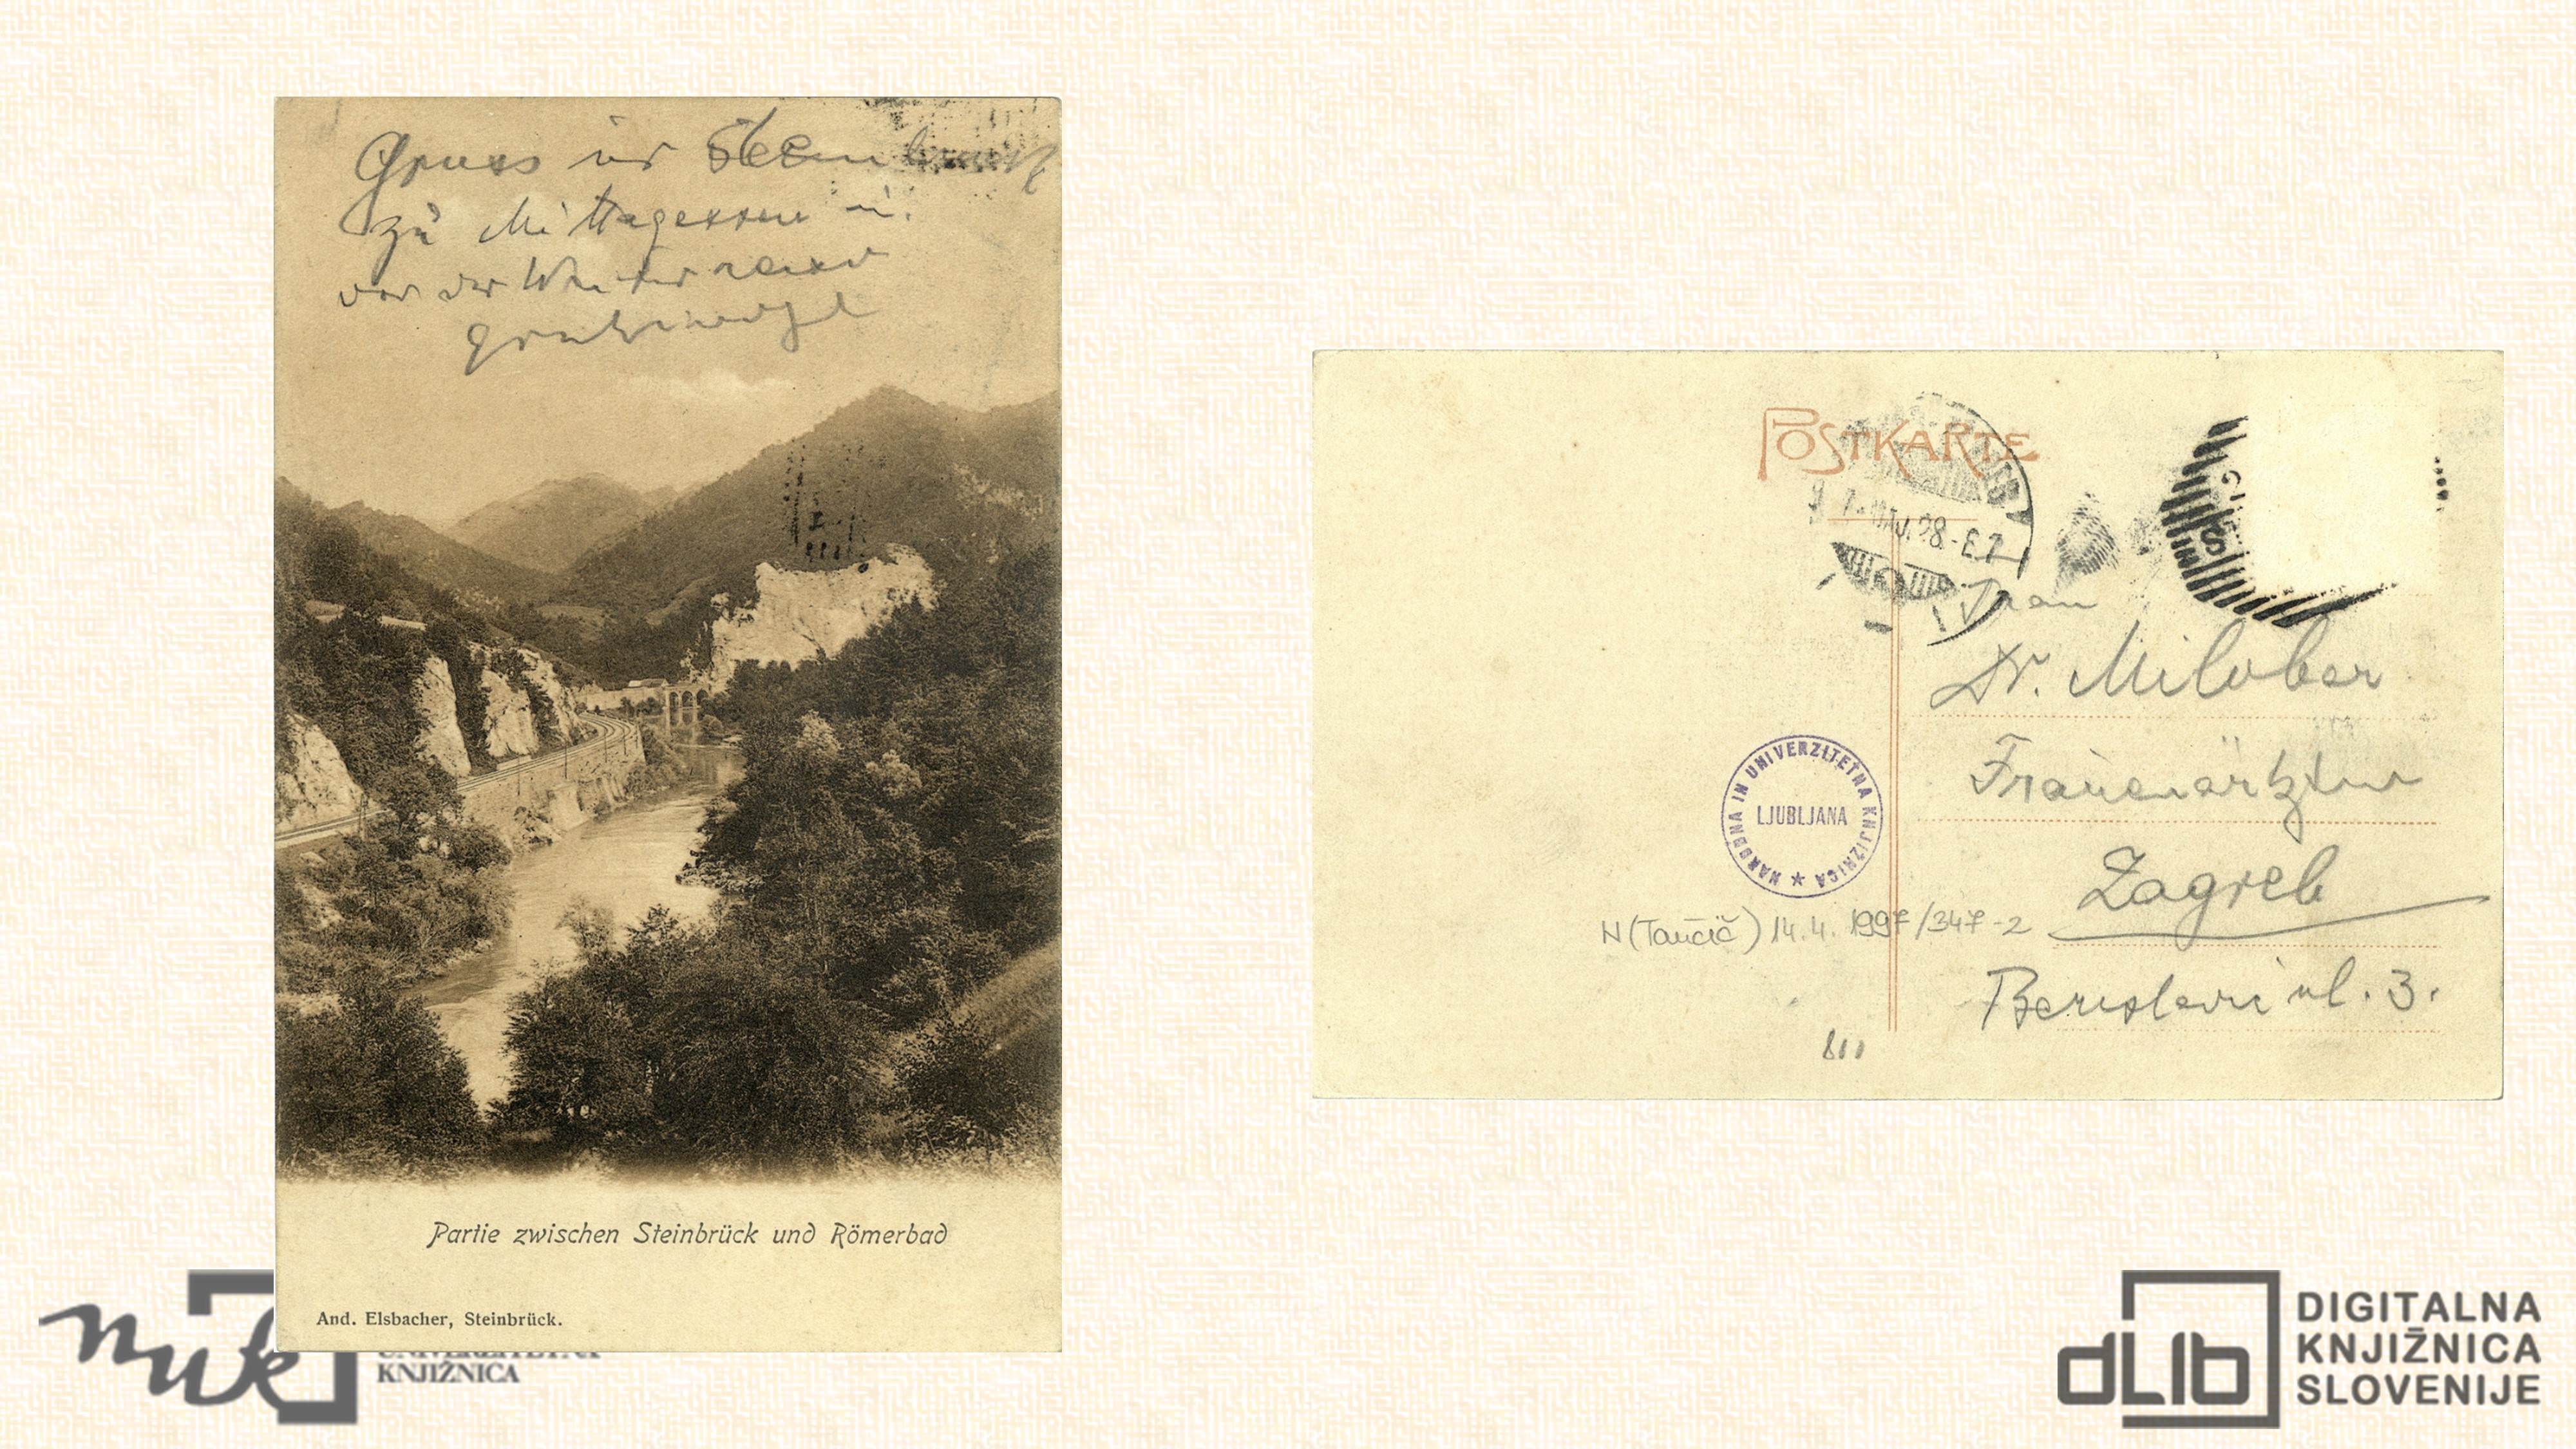 Gruss in Steinbrück
zu Mittagessen u.
vor der Weiterreise
Partie zwischen Steinbrück und Römerbad
And. Elsbacher, Steinbrück.
POSTKARTE
Frau
Dr. Milobar
Frauenärztin
Zagreb
Berislavi ul. 3.
NARODNA IN UNIVERZITETNA KNJIŽNICA
LJUBLJANA
N (Taučič) 14.4. 1997/347-2
811
nuk
KNJIŽNICA
dLib
DIGITALNA
KNJIŽNICA
SLOVENIJE